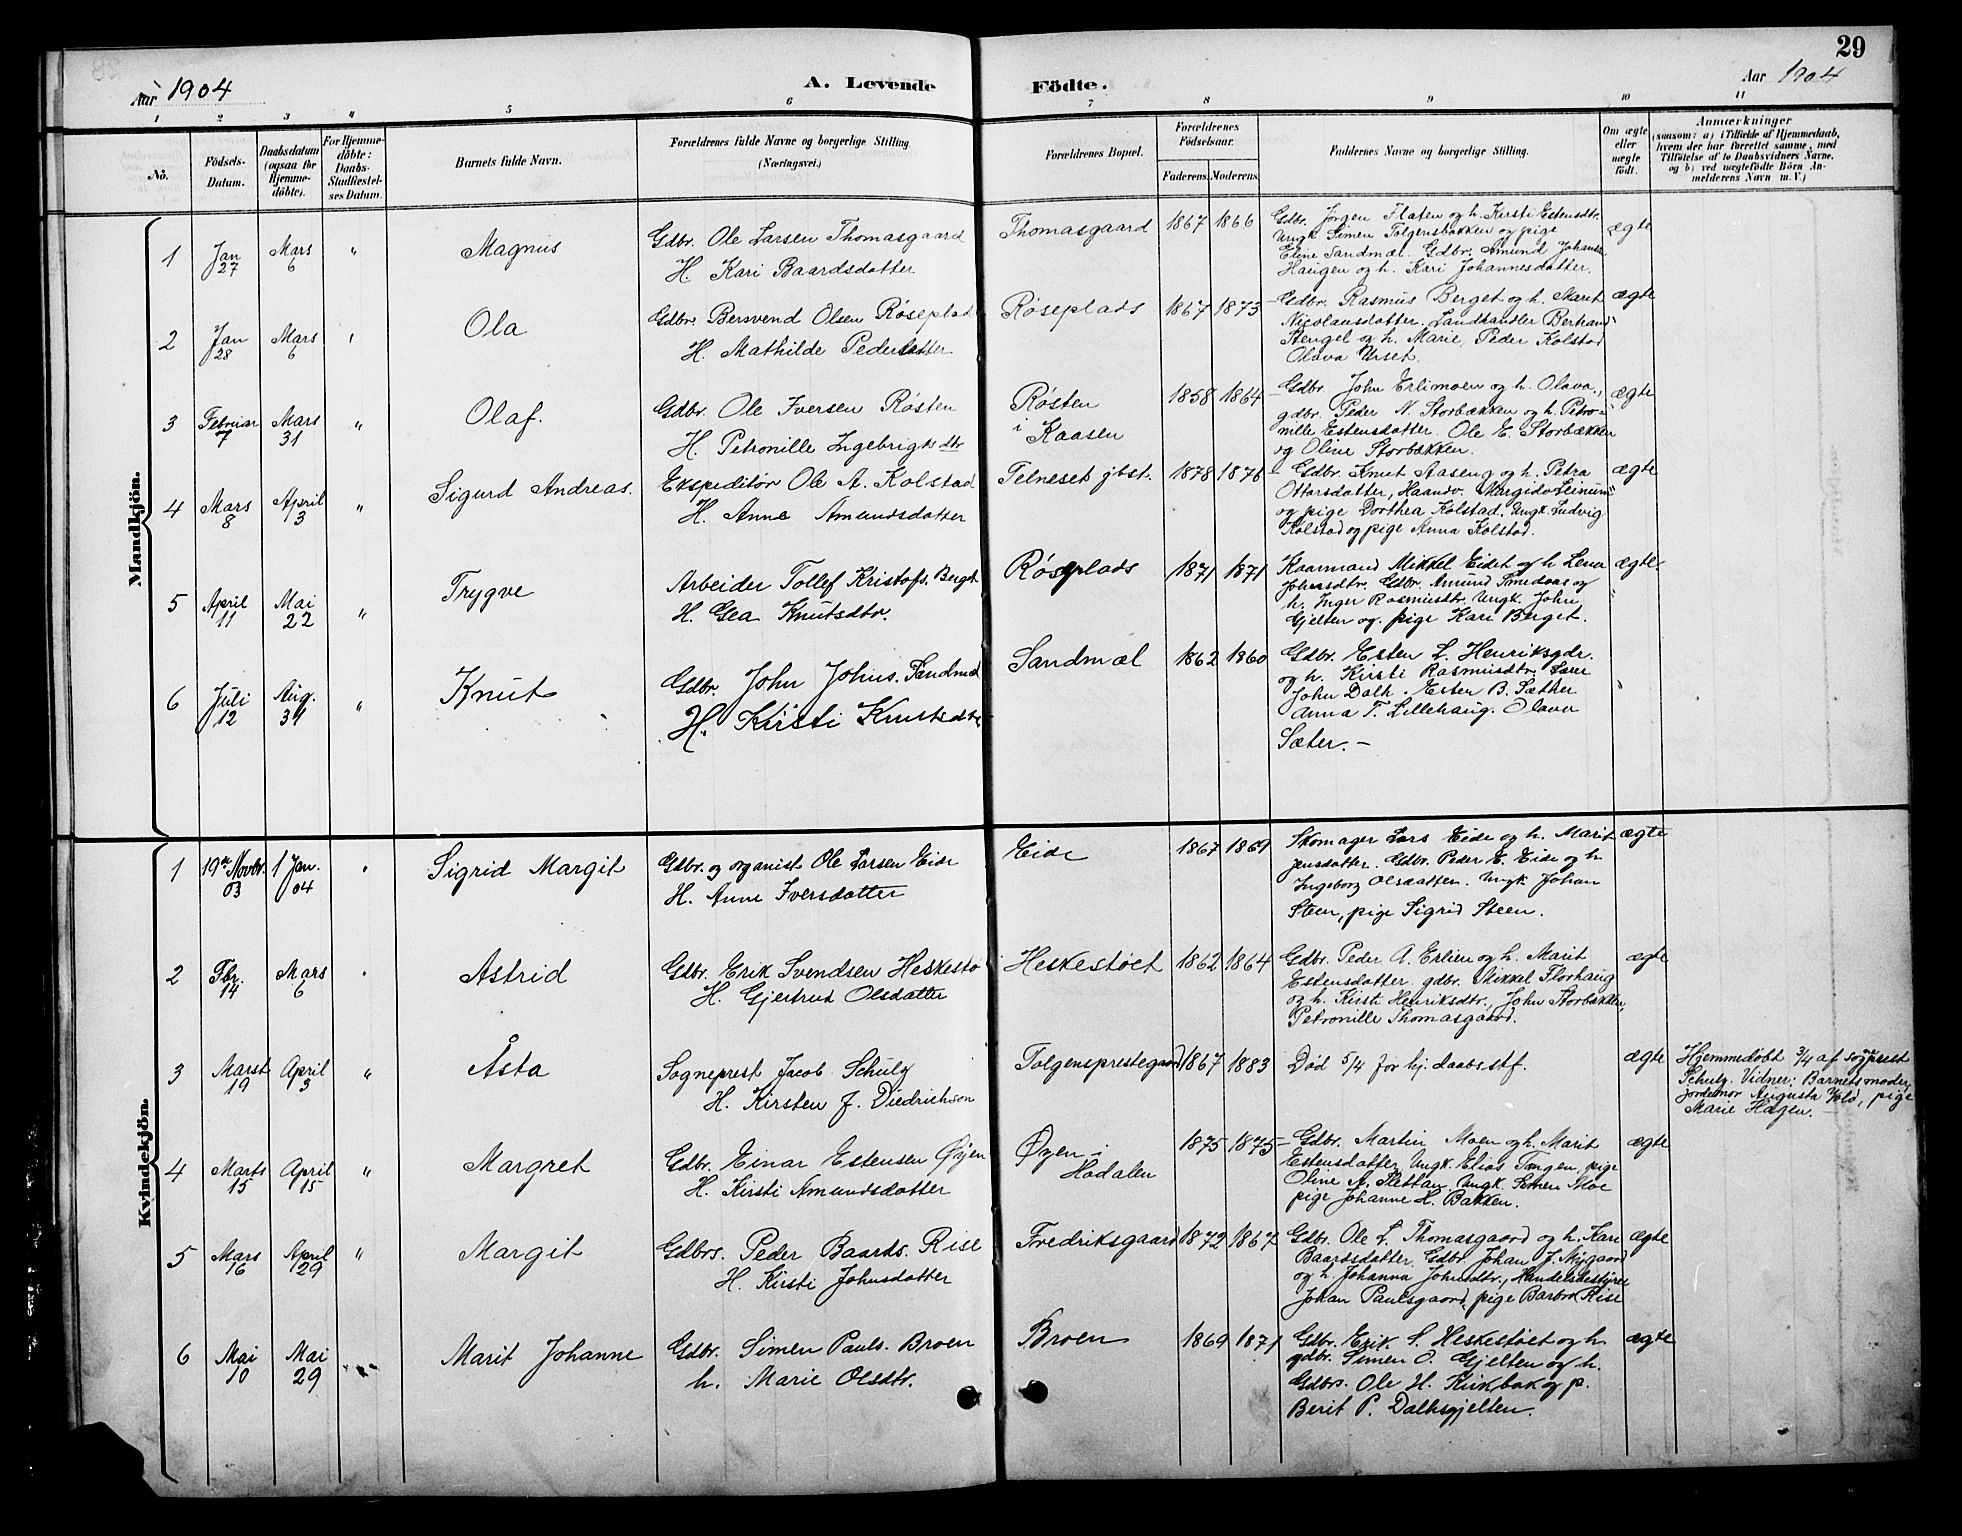 29
Aar 1904
A. Levende Födte.
Aar 1904
1 2 3 4 5 6 7 8 9 10 11
No.
Födsels-Datum.
Daabsdatum (ogsaa for Hjemme-döbte).
For Hjemme-döbte: Daabs-Stadfæstel-ses Datum.
Barnets fulde Navn.
Forældrenes fulde Navne og borgerlige Stilling. (Næringsvei.)
Forældrenes Bopæl.
Forældrenes Födselsaar.
Faderens. Moderens.
Faddernes Navne og borgerlige Stilling.
Om ægte eller uægte födt.
Anmærkninger
(saasom: a) i Tilfælde af Hjemmedaab,
hvem der har forrettet samme, med
Tilföielse af to Daabsvidners Navne.
og b) ved uægtefödte Börn An-
melderens Navn m. V.)
Mandkjön.
1 Jan 27 Mars 6 " Magnus
Gdbr. Ole Larsen Thomasgaard
H. Kari Baardsdatter
Thomasgaard 1867 1866
Gdbr. Jørgen Flaten og h. Kirsti Estensdtr.
Ungk. Simen Tolgensbakken og pige
Eline Sandmæl. Gdbr. Amund Johans.
Haugen og h. Kari Johannesdatter.
ægte
2 Jan 28 Mars 6 " Ola
Gdbr. Bersvend Olsen Røseplads
H. Mathilde Pedersdatter
Røseplads 1867 1873
Gdbr. Rasmus Berget og h. Marit
Nicolausdatter. Landhandler Bertrand
Stengel og h. Marie, Peder Kolstad
Olava Urset.
ægte
3 Februar 7 Mars 31 " Olaf.
Gdbr. Ole Iversen Røsten
H. Petronille Ingebrigtsdtr
Røsten i Kaasen 1858 1864
Gdbr. John Erlimoen og h. Olava,
gdbr. Peder N. Storbækken og h. Petro-
nille Estensdatter. Ole E. Storbækken
og Oline Storbækken.
ægte
4 Mars 8 April 3 " Sigurd Andreas.
Ekspeditør Ole A. Kolstad
H. Anne Amundsdatter
Telneset jbst. 1878 1876
Gdbr. Knut Aaseng og h. Petra
Ottarsdatter, Haandv. Margido Leinum
og pige Dorthea Kolstad. Ungk. Ludvig
Kolstad og pige Anna Kolstad.
ægte
5 April 11 Mai 22 " Trygve
Arbeider Tollef Kristofs. Berget
H. Gea Knutsdtr.
Røseplads 1871 1871
Kaarmand Mikkel Eidet og h Lena
Johnsdtr. Gdbr. Amund Smedaas og
h. Inger Rasmusdtr. Ungk. John
Gjelten og pige Kari Berget.
ægte
6 Juli 12 Aug. 31 " Knut
Gdbr. John Johns. Sandmæl
H. Kirsti Knutsdtr
Sandmæl 1862 1860
Gdbr. Esten L. Henriksgdr.
og h. Kirsti Rasmusdtr. Lærer
John Dalh. Esten B. Sæther
Anna T. Lillehaug. Olava
Sæter. —
"
Kvindekjön.
1 19de Novbr. 03 1 Jan. 04 " Sigrid Margit
Gdbr. og organist Ole Larsen Eide
H. Anne Iversdatter
Eide 1867 1869
Skomager Lars Eide og h. Marit
Jensdatter. Gdbr. Peder E. Eide og h
Ingeborg Olsdatter. Ungk Johan
Steen, pige Sigrid Steen.
ægte
2 Fbr. 14 Mars 6 " Astrid
Gdbr. Erik Svendsen Heskestø
H. Gjertrud Olsdatter
Heskestøet 1862 1864
Gdbr. Peder A. Erlien og h. Marit
Estensdatter. gdbr. Mikkel Florhaug
og h. Kirsti Henriksdtr, John Storbækken,
Petronille Thomasgaard.
ægte
3 Marst 19 April 3 " Åsta
Sogneprest Jacob Schulz
H. Kirsten J. Diedrichson
Tolgensprestegaard 1867 1883
Død 5/4 før hj. daabsstf.
ægte
Hjemmedøbt 3/4 af sogneprest
Schulz. Vidner: Barnets moder,
jordemor Augusta Vold, pige
Marie Hagen. —
4 Marts 15 April 15 " Margret
Gdbr. Einar Estensen Øyen
H. Kirsti Amundsdatter
Øyen i Hodalen 1875 1875
Gdbr. Martin Moen og h. Marit
Estensdatter, Ungk. Elias Tangen, pige
Oline A. Slettan. Ungk. Simen Moe
pige Johanne H. Bakken.
ægte
5 Mars 16 April 29 " Margit
Gdbrs. Peder Baards. Rise
H. Kirsti Johnsdatter
Fredriksgaard 1872 1867
Gdbr. Ole L. Thomasgaard og h. Kari
Baardsdatter. Gdbr Johan J. Nygaard
og h. Johanna Johnsdtr., Handelsbestyrer
Johan Paulsgaard, pige Barbro Rise
ægte
6 Mai 10 Mai 29 Marit Johanne
Gdbr. Simen Pauls. Broen
h. Marie Olsdtr.
Broen 1869 1871
Gdbr. Erik S. Heskestøet og h.
gdbr. Simen O. Gjelten og h.
Gdbrs. Ole H. Kirkbak og p.
Berit P. Dalhsgjelten.
ægte